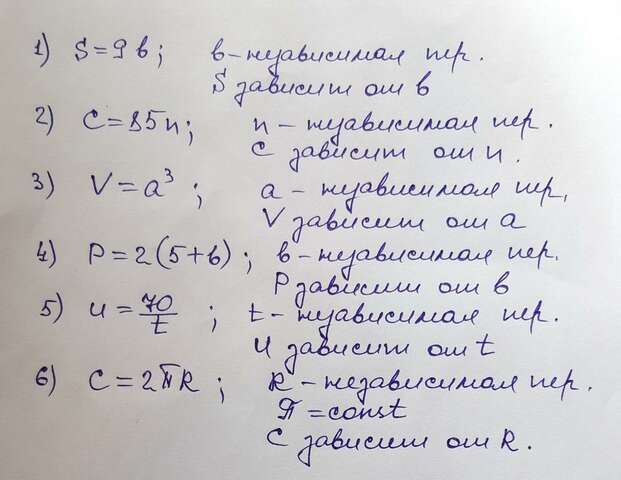 1) S=9b; b-независимая пер.
S зависит от b
2) C=85n; n - независимая пер.
C зависит от n.
3) V=a³; a - независимая пер,
V зависит от a
4) P=2(5+b); b - независимая пер.
P зависит от b
5) u=70/t; t - независимая пер.
u зависит от t
6) C=2πR; R - независимая пер.
π=const
C зависит от R.